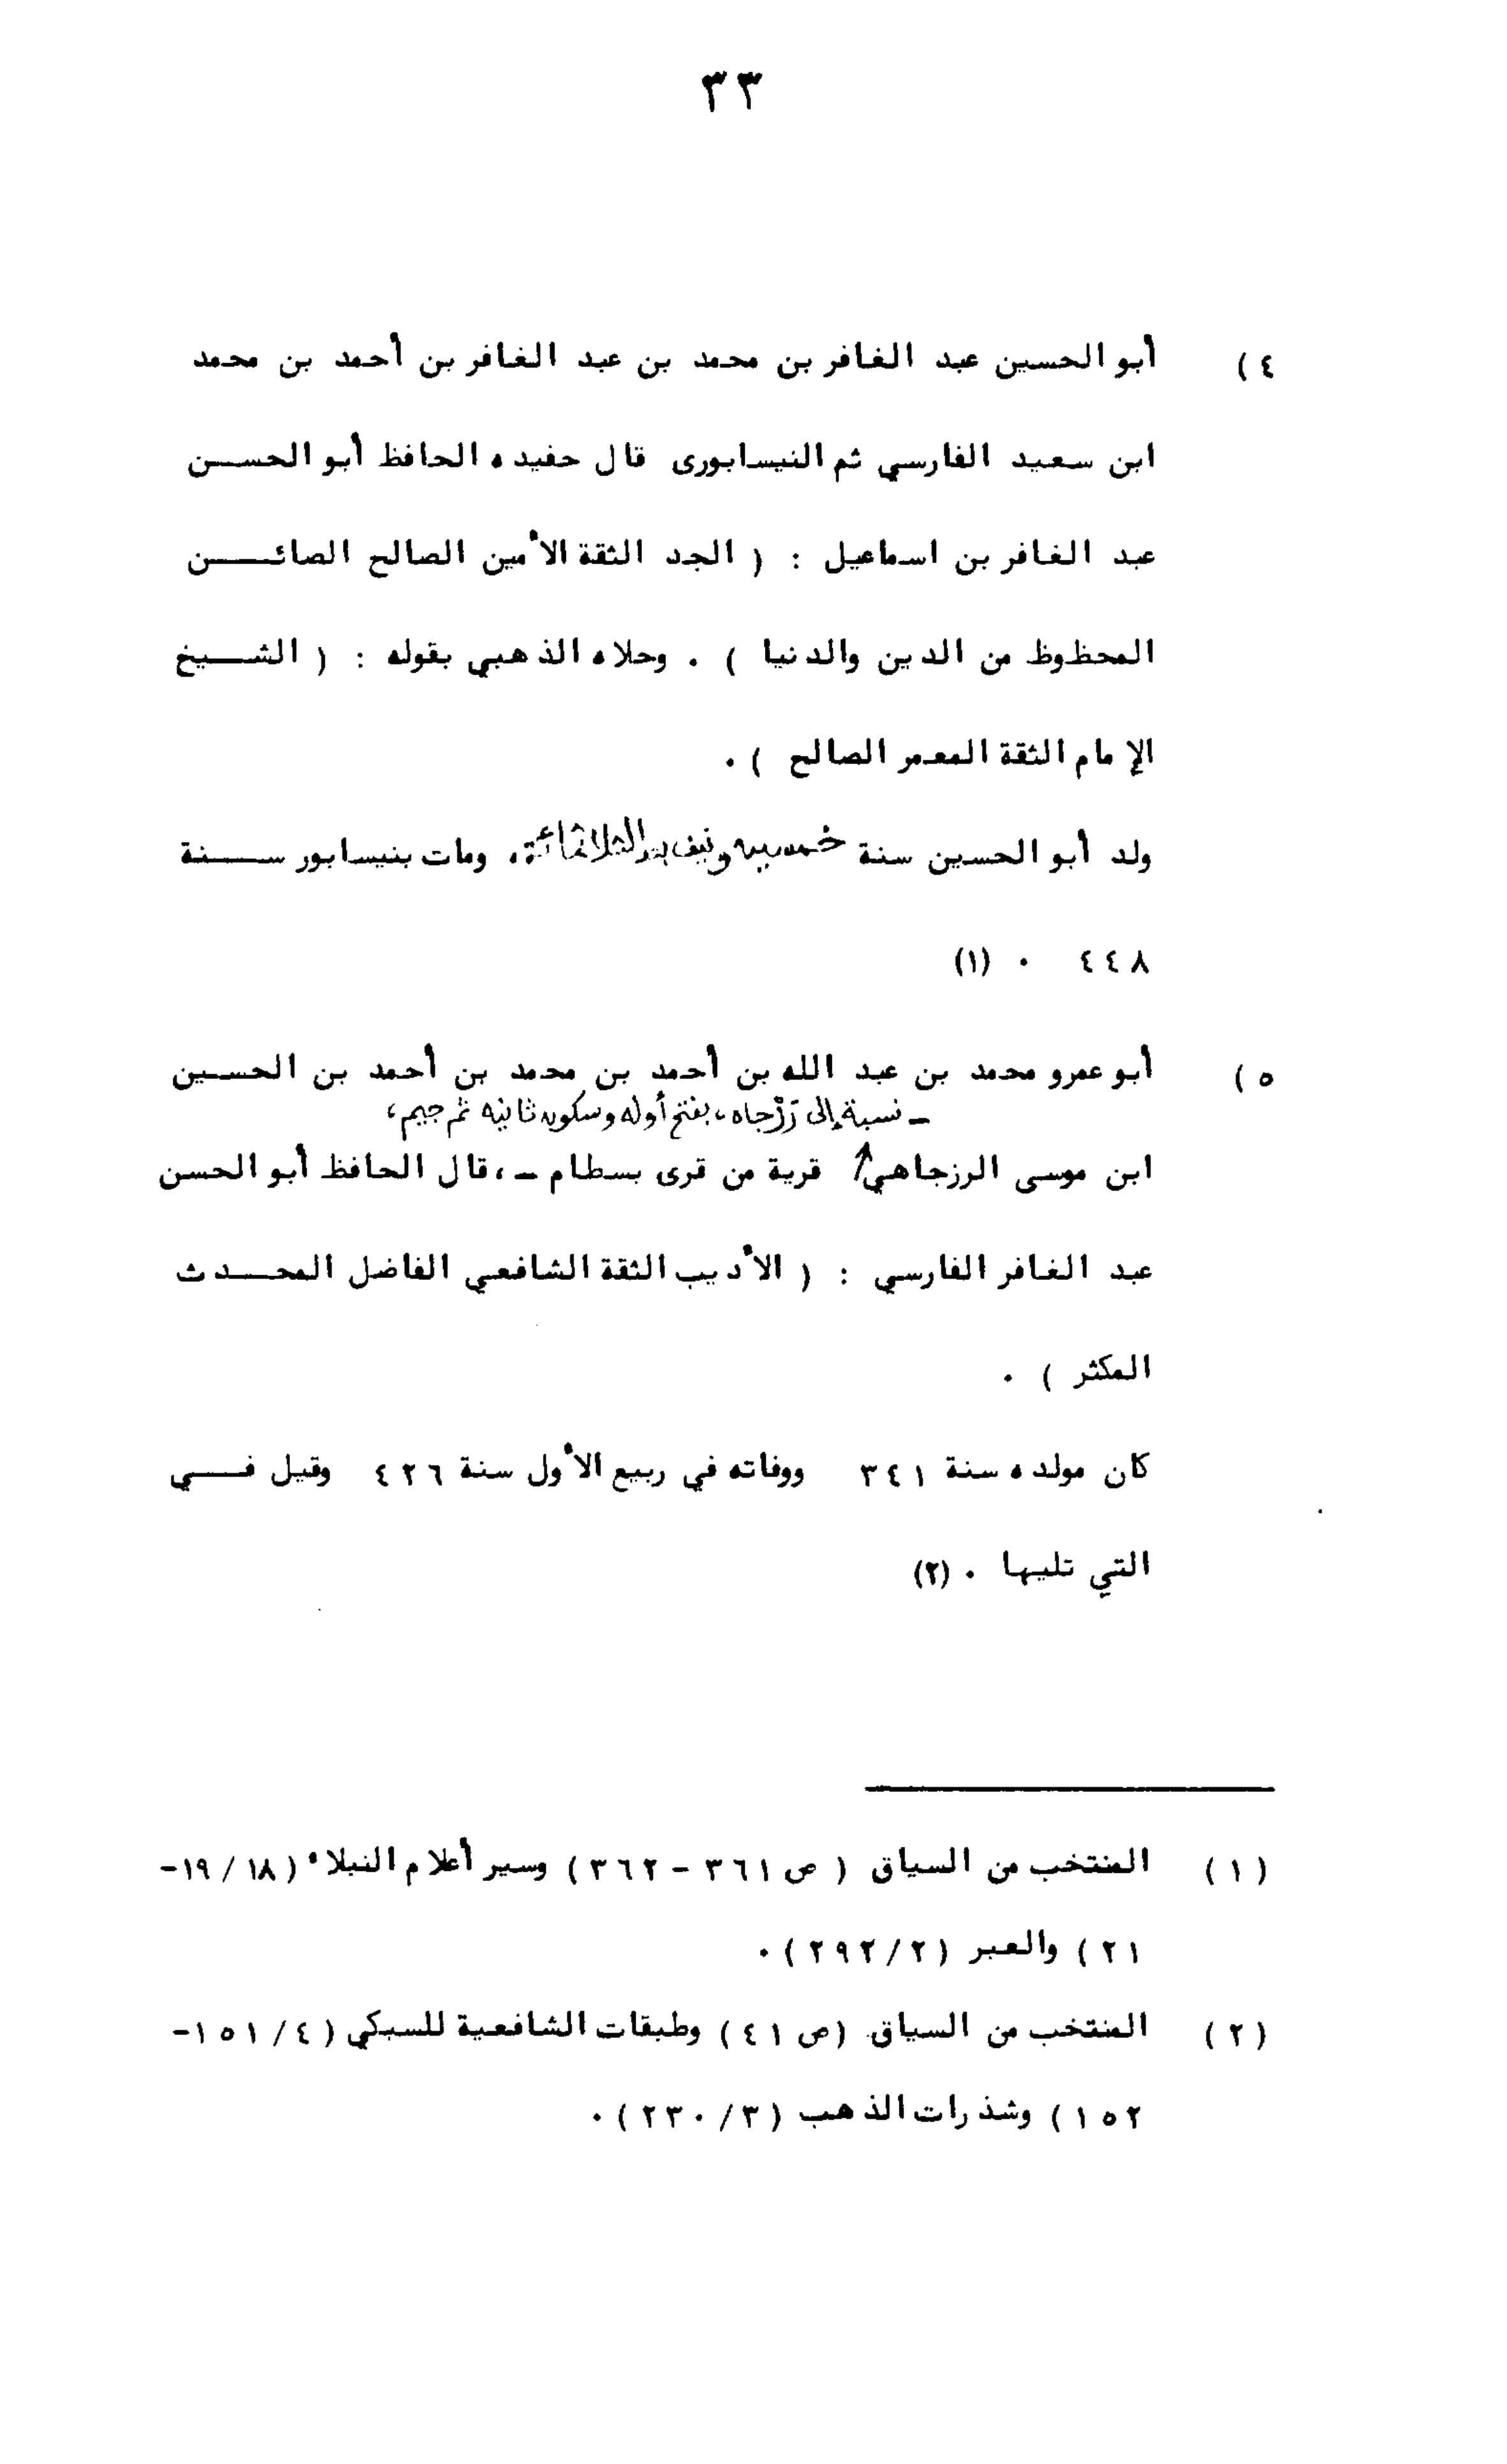 ٣٣
٤) أبو الحسين عبد الغافر بن محمد بن عبد الغافر بن أحمد بن محمد
ابن سعيد الفارسي ثم النيسابورى قال حفيده الحافظ أبو الحســن
عبد الغافر بن اسماعيل : ( الجد الثقة الأمين الصالح الصائـــن
المحظوظ من الدين والدنيا ) . وحلاه الذهبي بقوله : ( الشــيخ
الإمام الثقة المعمر الصالح ) .
ولد أبو الحسين سنة خمسين ونيف بعد الثلاثمائة، ومات بنيسابور ســـنة
٤٤٨ . (١)
٥) أبو عمرو محمد بن عبد الله بن أحمد بن محمد بن أحمد بن الحســين
ـ نسبة إلى رَزْجاه، بفتح أوله وسكون ثانيه ثم جيم،
ابن موسى الرزجاهي قرية من قرى بسطام ـ ،قال الحافظ أبو الحسن
عبد الغافر الفارسي : ( الأديب الثقة الشافعي الفاضل المحـــدث
المكثر ) .
كان مولده سنة ٣٤١ ووفاته في ربيع الأول سنة ٤٢٦ وقيل فـــي
التي تليها . (٢)
(١) المنتخب من السياق ( ص ٣٦١ - ٣٦٢ ) وسير أعلام النبلاء (١٨ / ١٩-
٢١ ) والعبر (٢٩٢/٢ ) .
(٢) المنتخب من السياق (ص ٤١ ) وطبقات الشافعية للسبكي (٤ /١٥١-
١٥٢ ) وشذرات الذهب (٣/ ٢٣٠ ) .